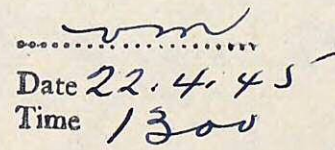 Date 22.4.45
Time 1300